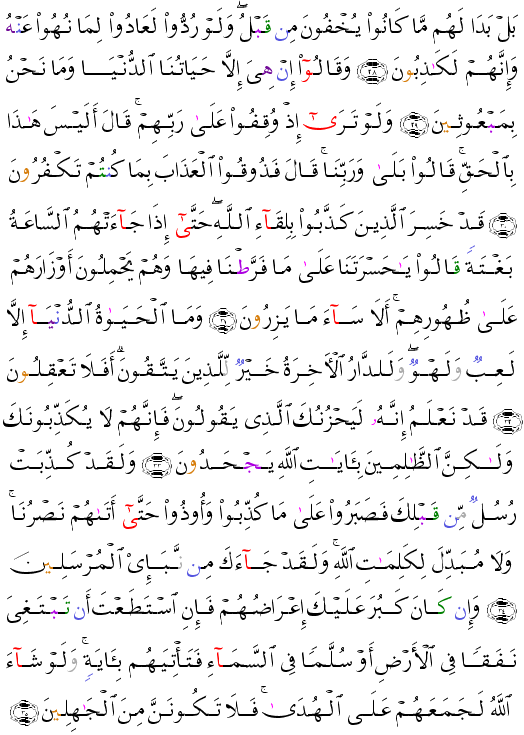 بَلْ بَدَا لَهُم مَّا كَانُوا۟ يُخْفُونَ مِن قَبْلُ ۖ وَلَوْ رُدُّوا۟ لَعَادُوا۟ لِمَا نُهُوا۟ عَنْهُ
وَإِنَّهُمْ لَكَـٰذِبُونَ ٢٨ وَقَالُوٓا۟ إِنْ هِىَ إِلَّا حَيَاتُنَا ٱلدُّنْيَا وَمَا نَحْنُ
بِمَبْعُوثِينَ ٢٩ وَلَوْ تَرَىٰٓ إِذْ وُقِفُوا۟ عَلَىٰ رَبِّهِمْ ۚ قَالَ أَلَيْسَ هَـٰذَا
بِٱلْحَقِّ ۚ قَالُوا۟ بَلَىٰ وَرَبِّنَا ۚ قَالَ فَذُوقُوا۟ ٱلْعَذَابَ بِمَا كُنتُمْ تَكْفُرُونَ
٣٠ قَدْ خَسِرَ ٱلَّذِينَ كَذَّبُوا۟ بِلِقَآءِ ٱللَّهِ ۖ حَتَّىٰٓ إِذَا جَآءَتْهُمُ ٱلسَّاعَةُ
بَغْتَةً قَالُوا۟ يَـٰحَسْرَتَنَا عَلَىٰ مَا فَرَّطْنَا فِيهَا وَهُمْ يَحْمِلُونَ أَوْزَارَهُمْ
عَلَىٰ ظُهُورِهِمْ ۚ أَلَا سَآءَ مَا يَزِرُونَ ٣١ وَمَا ٱلْحَيَوٰةُ ٱلدُّنْيَآ إِلَّا
لَعِبٌ وَلَهْوٌ ۖ وَلَلدَّارُ ٱلْـَٔاخِرَةُ خَيْرٌ لِّلَّذِينَ يَتَّقُونَ ۗ أَفَلَا تَعْقِلُونَ
٣٢ قَدْ نَعْلَمُ إِنَّهُۥ لَيَحْزُنُكَ ٱلَّذِى يَقُولُونَ ۖ فَإِنَّهُمْ لَا يُكَذِّبُونَكَ
وَلَـٰكِنَّ ٱلظَّـٰلِمِينَ بِـَٔايَـٰتِ ٱللَّهِ يَجْحَدُونَ ٣٣ وَلَقَدْ كُذِّبَتْ
رُسُلٌ مِّن قَبْلِكَ فَصَبَرُوا۟ عَلَىٰ مَا كُذِّبُوا۟ وَأُوذُوا۟ حَتَّىٰٓ أَتَىٰهُمْ نَصْرُنَا ۚ
وَلَا مُبَدِّلَ لِكَلِمَـٰتِ ٱللَّهِ ۚ وَلَقَدْ جَآءَكَ مِن نَّبَإِى۟ ٱلْمُرْسَلِينَ
٣٤ وَإِن كَانَ كَبُرَ عَلَيْكَ إِعْرَاضُهُمْ فَإِنِ ٱسْتَطَعْتَ أَن تَبْتَغِىَ
نَفَقًا فِى ٱلْأَرْضِ أَوْ سُلَّمًا فِى ٱلسَّمَآءِ فَتَأْتِيَهُم بِـَٔايَةٍ ۚ وَلَوْ شَآءَ
ٱللَّهُ لَجَمَعَهُمْ عَلَى ٱلْهُدَىٰ ۚ فَلَا تَكُونَنَّ مِنَ ٱلْجَـٰهِلِينَ ٣٥